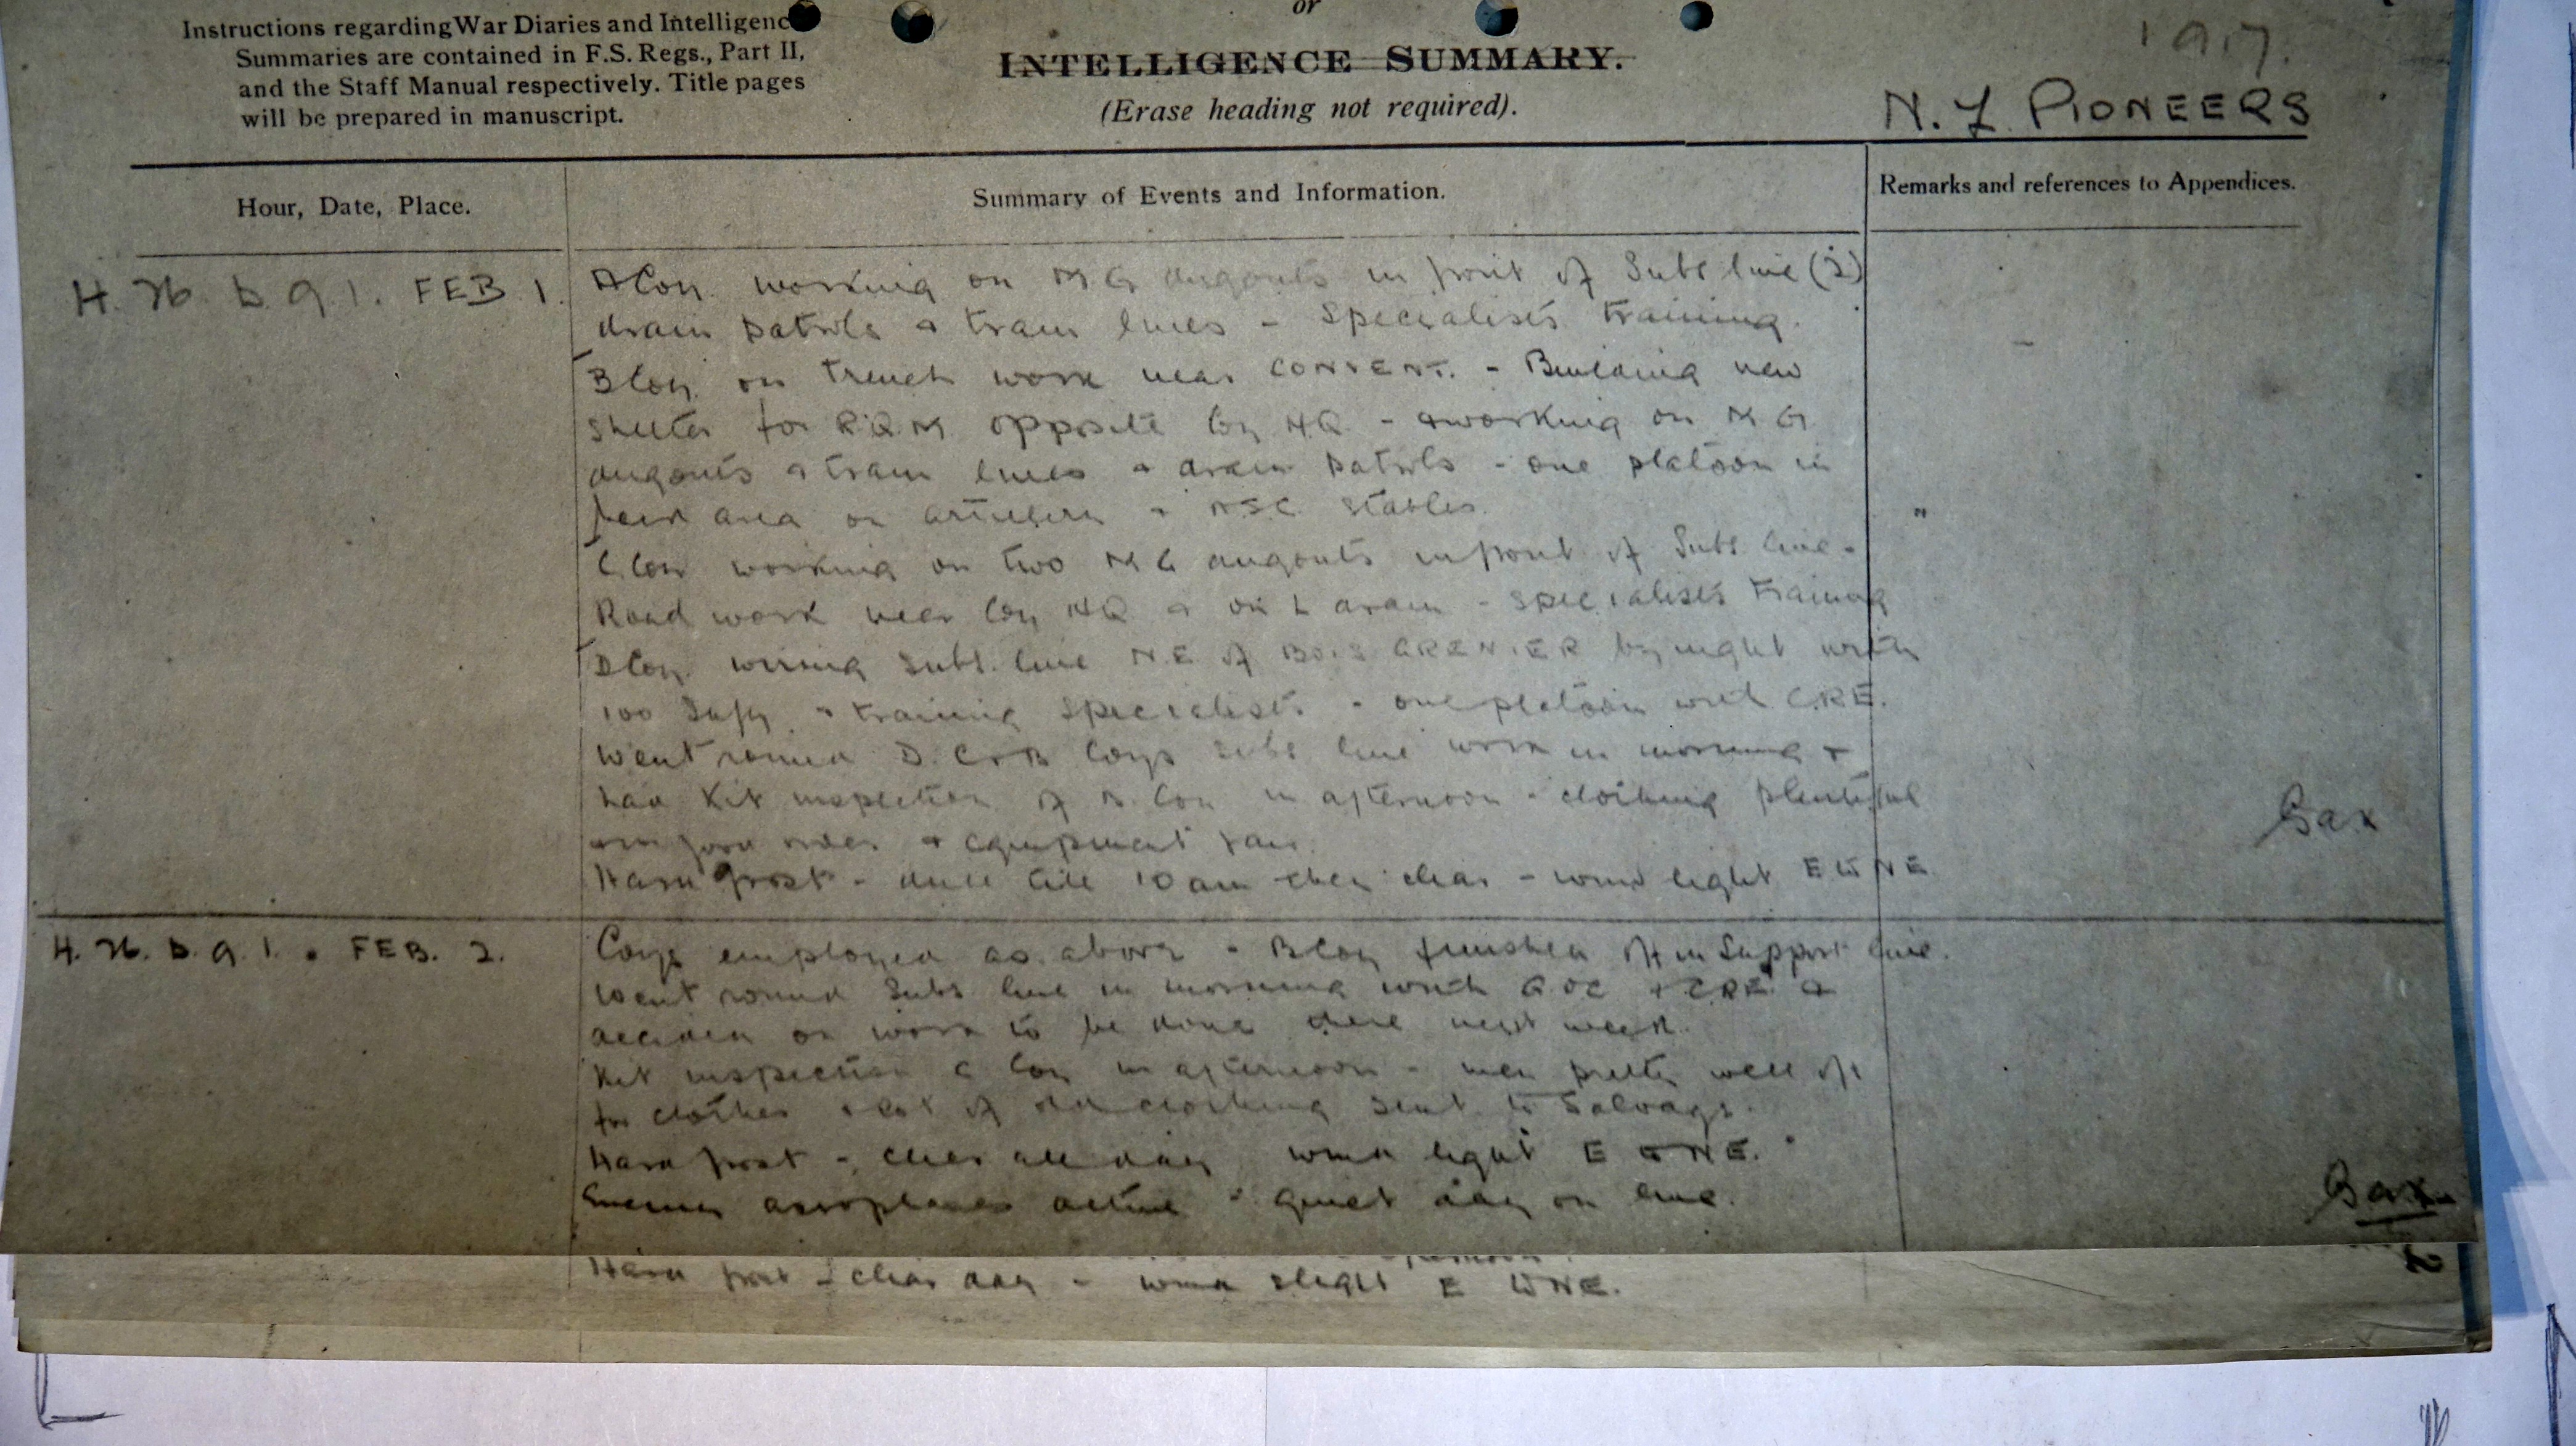 or
Instructions regarding War Diaries and Intelligence
Summaries are contained in F.S. Regs., Part II,
and the Staff Manual respectively. Title pages
will be prepared in manuscript.
INTELLIGENCE SUMMARY.
(Erase heading not required).
1917.
N.Z PIONEERS
Hour, Date, Place.
Summary of Events and Information.
Remarks and references to Appendices.
H. 26. b. 9. 1. FEB 1.
A Coy. working on M G dugouts in front of Subs line (2)
drain patrols & tram lines - Specialists training.
B Coy. on trench work near CONVENT. - Building new
shelter for RQM opposite Coy HQ - & working on M G
dugouts & tram lines & drain patrols - one platoon in
back area on artillery & ASC stables.
C Coy working on two M G dugouts in front of Subs line -
Road work near Coy HQ & on L drain - Specialists training
D Coy. wiring Subs. line N.E of BOIS GRENIER by night with
100 Infy. & training Specialists. - one platoon with C.R.E.
Went round D. C & B Coys subs line work in morning &
had Kit inspection of B. Coy in afternoon - clothing plentiful
in good order & equipment fair.
Hard frost - dull till 10 am then clear - wind light E to NE
Gax
H. 26. b. 9. 1. FEB. 2.
Coys employed as above - B Coy finished off in Support line.
Went round Subs line in morning with GOC & CRE &
decided on work to be done there next week.
Kit inspection C Coy in afternoon - men pretty well off
for clothes & lot of old clothing sent to Salvage.
Hard frost - clear all day wind light E to NE.
Enemy aeroplanes active - quiet day on line.
Gax
afternoon.
Hard frost - clear day - wind slight E to NE.